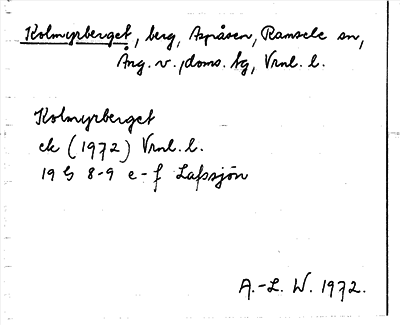 Kolmyrberget, berg, Aspåsen, Ramsele sn,
Ång. v. doms. tg, Vrnl. l.
Kolmyrberget
ek (1972) Vrnl. l.
19 G 8-9 e-f Lafssjön
A.-L. W. 1972.